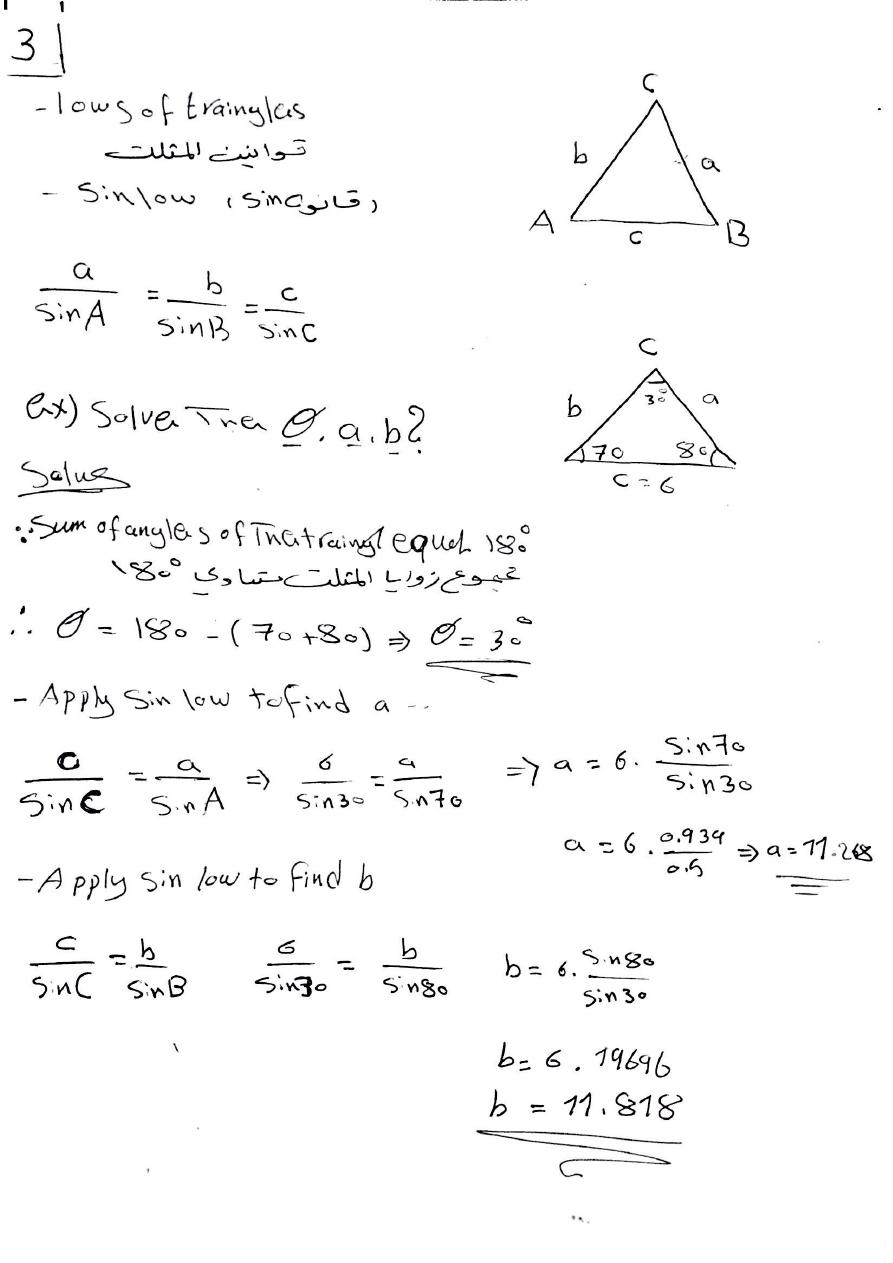 3
- lows of traingles
قوانين المثلث
- Sin low (قانون sin)
C
b
a
A
c
B
a/sinA = b/sinB = c/sinC
ex) Solve The θ, a, b?
C
b
30
a
70
80
c = 6
Solve
∵ Sum of angles of The traingl equel 180°
مجموع زوايا المثلث تساوي 180°
∴ θ = 180 - (70+80) ⇒ θ = 30°
- Apply Sin low to find a ..
c/sinC = a/sinA ⇒ 6/sin30 = a/sin70 ⇒ a = 6. Sin70/Sin30
a = 6. 0.939/0.5 ⇒ a = 11.268
- Apply sin low to find b
c/sinC = b/sinB 6/sin30 = b/sin80 b = 6. Sin80/Sin30
b = 6. 19696
b = 11.818